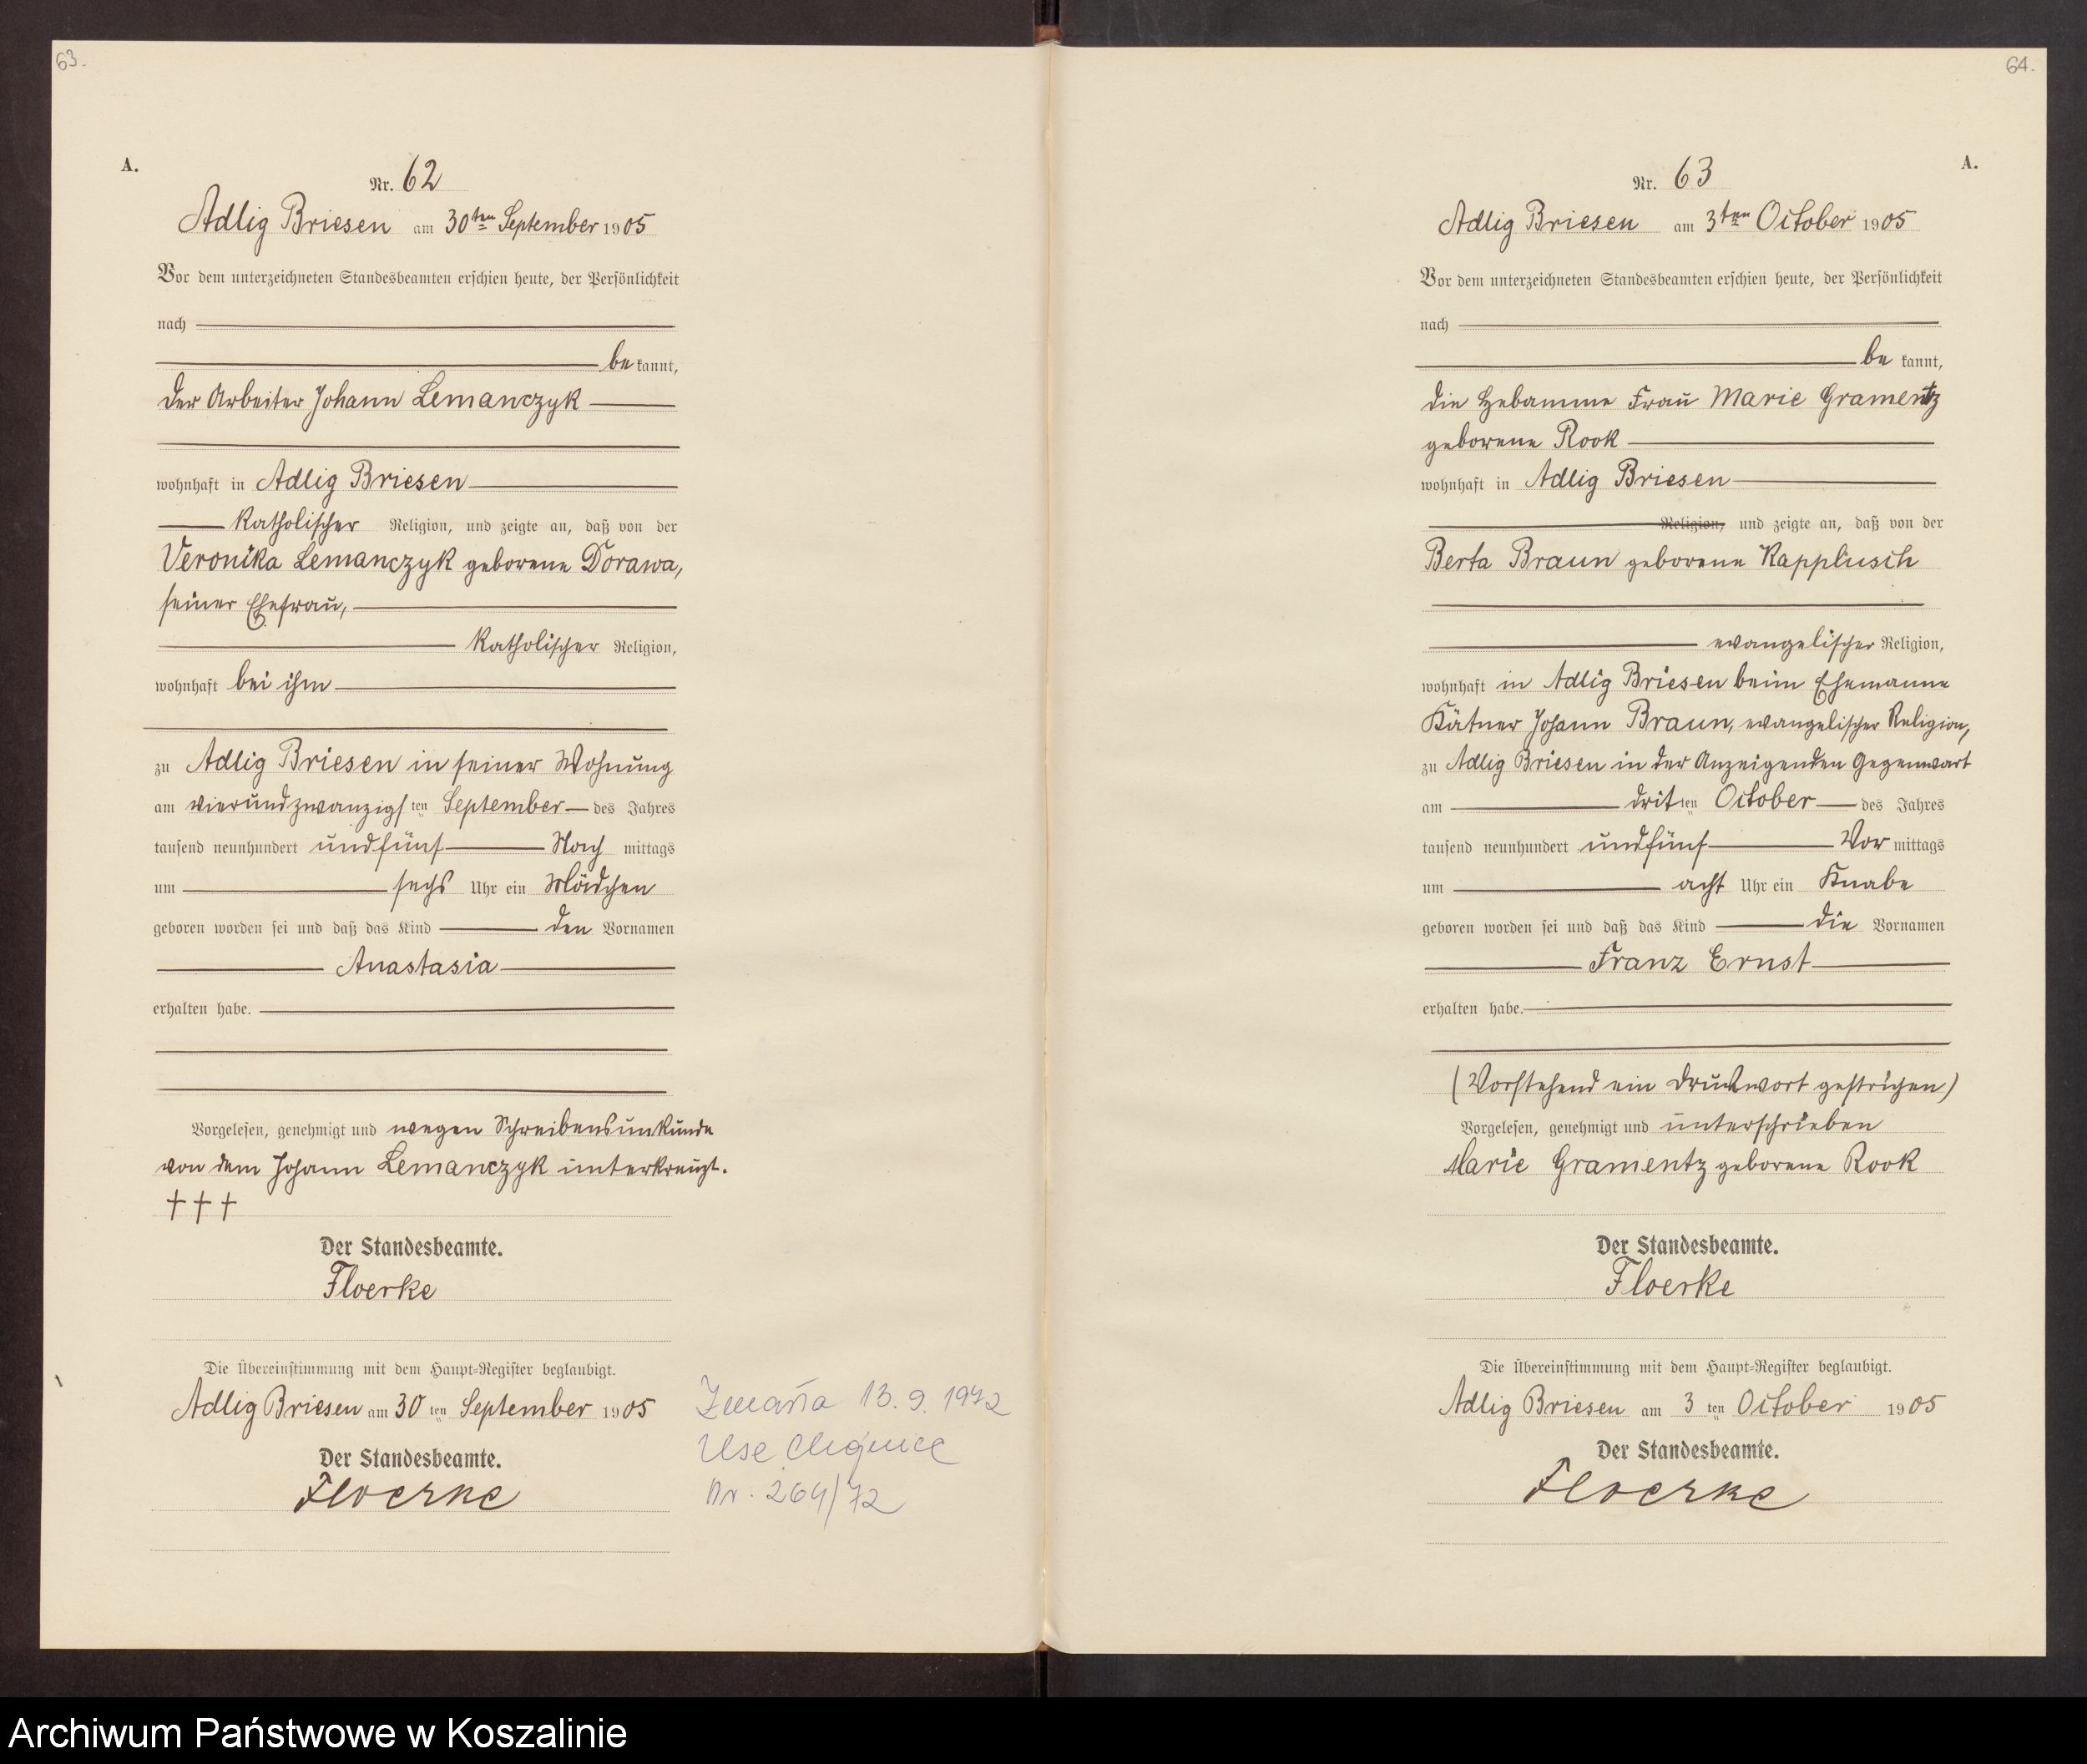 63.
A.
Nr. 62
Adlig Briesen am 30ten September 1905
Vor dem unterzeichneten Standesbeamten erschien heute, der Persönlichkeit
nach
bekannt,
der Arbeiter Johann Lemanczyk
wohnhaft in Adlig Briesen
katholischer Religion, und zeigte an, daß von der
Veronika Lemanczyk geborene Dorawa,
seiner Ehefrau,
katholischer Religion,
wohnhaft bei ihm
zu Adlig Briesen in seiner Wohnung
am vierundzwanzigsten September des Jahres
tausend neunhundert undfünf Nachmittags
um sechs Uhr ein Mädchen
geboren worden sei und daß das Kind den Vornamen
Anastasia
erhalten habe.
Vorgelesen, genehmigt und wegen Schreibensunkunde
von dem Johann Lemanczyk unterkreuzt.
† † †
Der Standesbeamte.
Floerke
Die Übereinstimmung mit dem Haupt-Register beglaubigt.
Adlig Briesen am 30ten September 1905
Der Standesbeamte.
Floerke
Zmarła 13.9.1972
Use
Nr. 264/72
64.
A.
Nr. 63
Adlig Briesen am 3ten October 1905
Vor dem unterzeichneten Standesbeamten erschien heute, der Persönlichkeit
nach
bekannt,
die Hebamme Frau Marie Gramentz
geborene Rook
wohnhaft in Adlig Briesen
Religion, und zeigte an, daß von der
Berta Braun geborene Kapplusch
evangelischer Religion,
wohnhaft in Adlig Briesen beim Ehemanne
Kätner Johann Braun, evangelischer Religion,
zu Adlig Briesen in der Anzeigenden Gegenwart
am dritten October des Jahres
tausend neunhundert undfünf Vormittags
um acht Uhr ein Knabe
geboren worden sei und daß das Kind die Vornamen
Franz Ernst
erhalten habe.
(Vorstehend ein Druckwort gestrichen)
Vorgelesen, genehmigt und unterschrieben
Marie Gramentz geborene Rook
Der Standesbeamte.
Floerke
Die Übereinstimmung mit dem Haupt-Register beglaubigt.
Adlig Briesen am 3ten October 1905
Der Standesbeamte.
Floerke
Archiwum Państwowe w Koszalinie